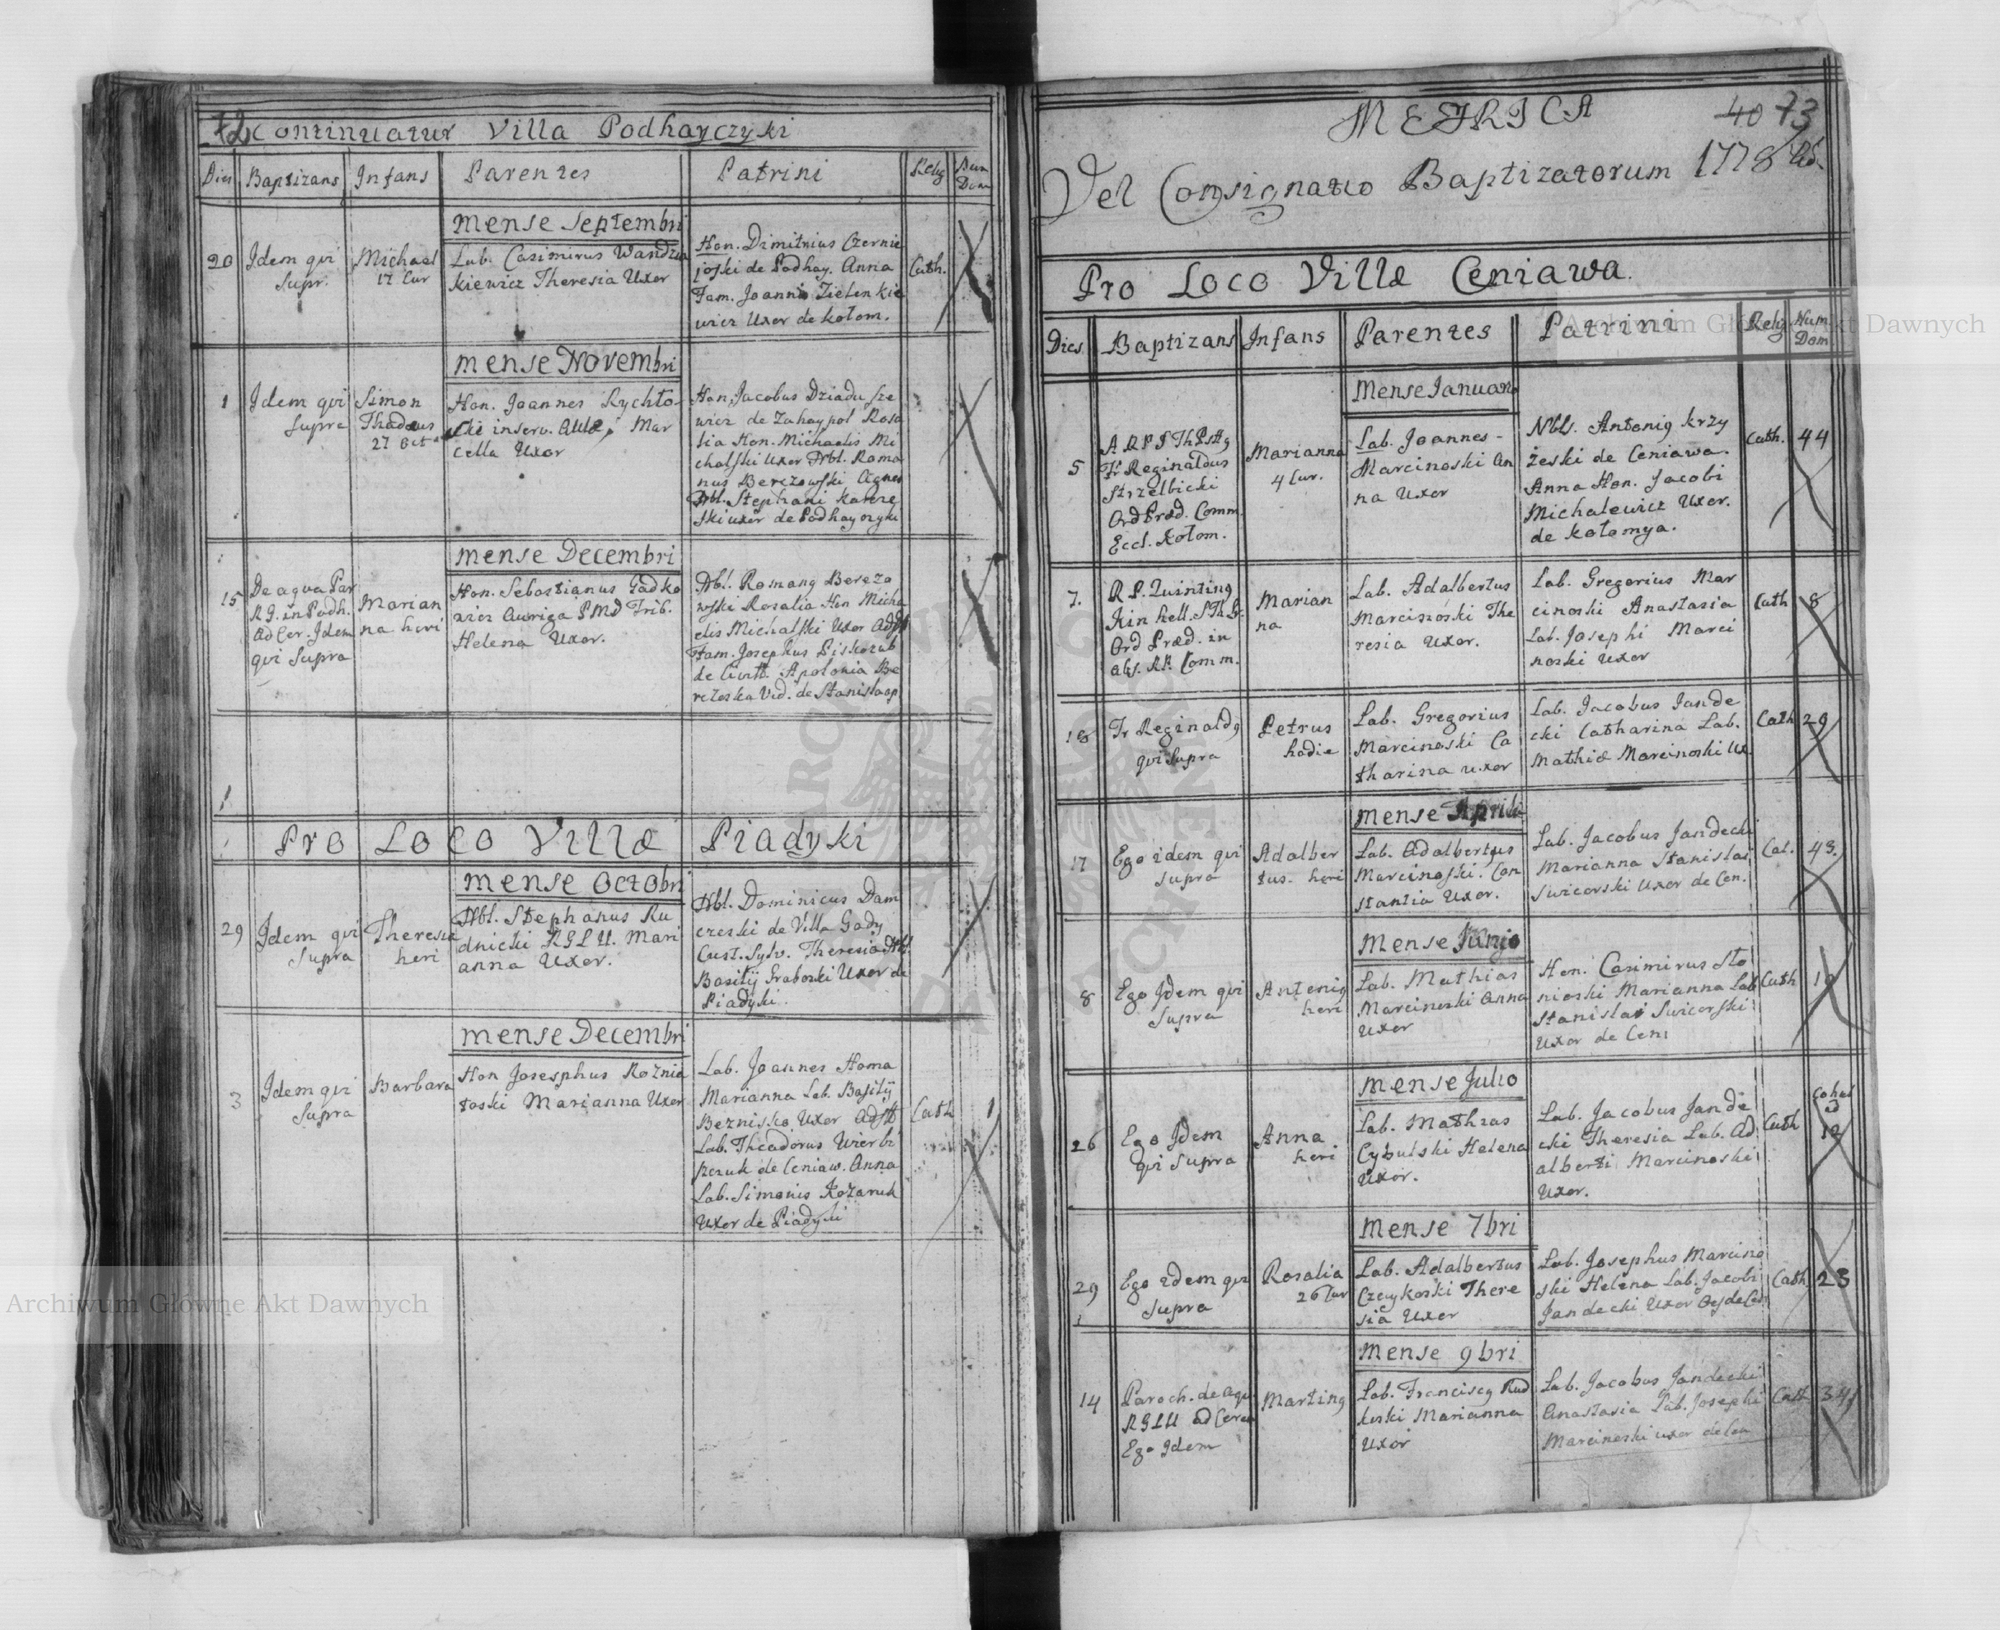 72 Continuatur Villa Podhayczyki
Dies Baptizans Infans Parentes Patrini Relig Num Dom
Mense Septembri
20
Idem qvi
Supr.
Michael
17 Cur
Lab. Casimirus Wandzia
kiewicz Theresia Uxor
Hon. Dimitrius Czernie
joski de Podhay. Anna
Fam. Joannis Zielenkie
wicz Uxor de Kołom.
Cath.
Mense Novembri
1
Idem qvi
Supra
Simon
Thadæus
27 Oct
Hon. Joannes Rychto
cki inserv. Aulæ, Mar
cella Uxor
Hon. Jacobus Dziadusze
wicz de Zahaypol Rosa
lia Hon. Michaelis Mi
chalski Uxor Nbl. Roma
nus Berezowski Agnes
Nbl. Stephani
ski uxor de Podhayczyki
Mense Decembri
15
De aqva Par
R.G. in Podh.
Ad Cer. Idem
qvi Supra
Marian
na heri
Hon. Sebastianus Gadko
wicz Auriga P.M.D. Trib.
Helena Uxor.
Nbl. Romang Berezo
wski Rosalia Hon Micha
elis Michalski Uxor Adst
Fam. Josephus Piskozub
de Apolonia Be
rezoska Vid. de Stanislaop
Pro Loco Villæ Piadyki
Mense Octobri
29
Idem qvi
Supra
Theresia
heri
Nbl. Stephanus Ru
dnicki R.G.L.U. Mari
anna Uxor.
Nbl. Dominicus Dam
czeski de Villa Gody
Cust. Sylv. Theresia Nbl.
Basilij Graboski Uxor de
Piadyki.
Mense Decembri
3
Idem qvi
Supra
Barbara
Hon Josesphus Roznia
toski Marianna Uxor
Lab. Joannes Homa
Marianna Lab. Basilij
Bezniska Uxor Adst
Lab. Theodorus Wierbi
szczuk de Ceniaw. Anna
Lab. Simonis Kozaruk
Uxor de Piadyki
Cath
1
METRICA
40 73
Vel Consignatio Baptizatorum 1778
Pro Loco Villæ Ceniawa.
Dies Baptizans Infans Parentes Patrini Relig Num Dom
Mense Januario
5
A R P S Th Pstg
Fr Reginaldus
Strzelbicki
Ord Præd. Comm.
Eccl. Kołom.
Marianna
4 Cur.
Lab. Joannes -
Marcinoski An
na Uxor
Nbls. Antonig Krzy
żeski de Ceniawa.
Anna Hon. Jacobi
Michalewicz Uxor.
de Kołomya.
Cath. 44
7.
R P. Quinting
Kinhell S Th Lr.
Ord Præd. in
abs. RP. Comm.
Marian
na
Lab. Adalbertus
Marcinoski The
resia Uxor.
Lab. Gregorius Mar
cinoski Anastasia
Lab. Josephi Marci
noski Uxor
Cath 8
18
Fr Reginaldg
qvi Supra
Petrus
hodie
Lab. Gregorius
Marcinoski Ca
tharina uxor
Lab. Jacobus Jande
cki Catharina Lab.
Mathiæ Marcinoski Ux
Cath 29
Mense Aprili
17
Ego idem qvi
Supra
Adalber
tus. heri
Lab. Adalbertus
Marcinoski. Con
stantia Uxor.
Lab. Jacobus Jandecki
Marianna Stanislai
Swicorski Uxor de Cen.
Cat. 43.
Mense Junio
8
Ego Idem qvi
Supra
Antonig
heri
Lab. Mathias
Marcinoski Anna
Uxor
Hon. Casimirus Sło
nioski Marianna Lab
Stanislai Swicorski
Uxor de Ceni
Cath 10
Mense Julio
26
Ego Idem
qvi Supra
Anna
heri
Lab. Mathias
Cybulski Helena
Uxor.
Lab. Jacobus Jande
cki Theresia Lab. Ad
alberti Marcinoski
Uxor.
Cath
Mense 7bri
29
Ego idem qvi
Supra
Rosalia
26 Cur
Lab. Adalbertus
Czeykoski There
sia Uxor
Lab. Josephus Marcino
ski Helena Lab. Jacobi
Jandecki Uxor de Cen
Cath 23
Mense 9bri
14
Paroch. de aqu
R.G.L.U ad Cerem
Ego Idem
Marting
Lab. Franciscg Rud
koski Marianna
Uxor
Lab. Jacobus Jandecki
Anastasia Lab. Josephi
Marcinoski uxor de Cen
Cath 34
Archiwum Główne Akt Dawnych
Archiwum Główne Akt Dawnych